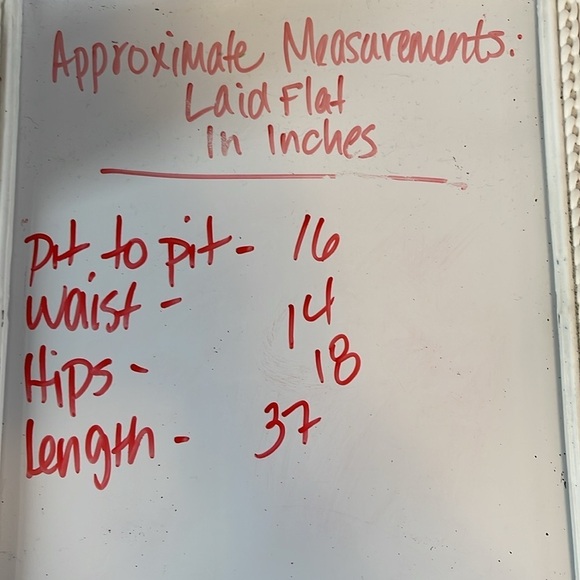 Approximate Measurements:
Laid Flat
In Inches
Pit to pit - 16
Waist - 14
Hips - 18
Length - 37